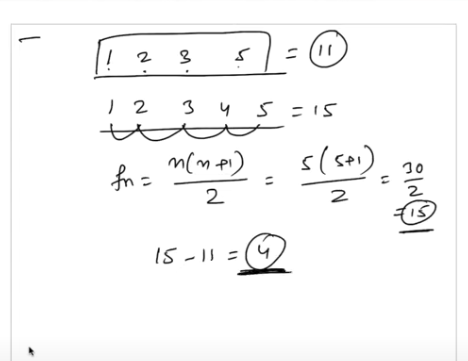 1 2 3 5 = 11
1 2 3 4 5 = 15
fn = n(n+1)/2 = 5(5+1)/2 = 30/2
= 15
15 - 11 = 4